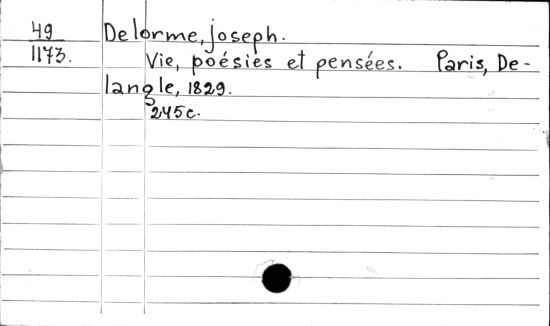 49 Delorme, joseph.
1173. Vie, poésies et pensées. Paris, De-
langle, 1829.
245c.